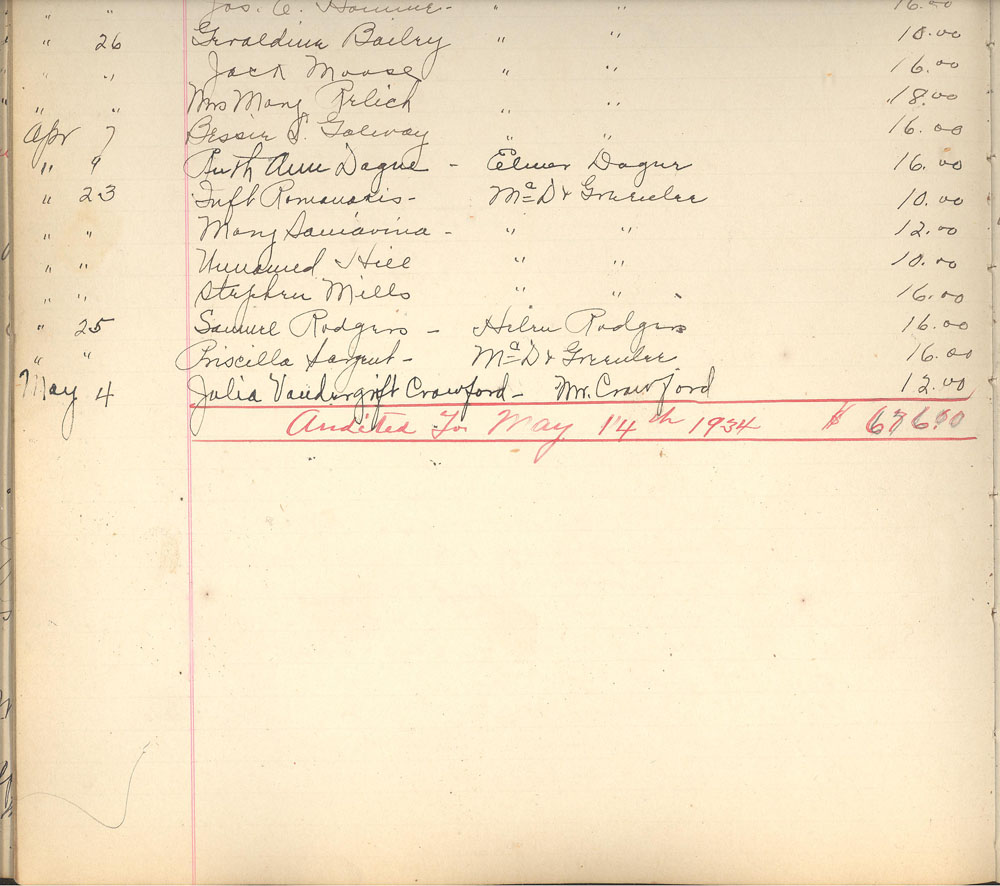 Jos. C. " " 16.00
" 26 Geraldine Bailey " " 10.00
" " Jack Moose " " 16.00
" " Mrs Mary Relich " " 18.00
Apr 7 Bessie S. Galway " " 16.00
" 9 Ruth Ann Dague - Elmer Dague 16.00
" 23 Inft Romanakis - McD & Greenlee 10.00
" " Mary - " " 12.00
" " Unnamed Hill " " 10.00
" " Stephen Mills " " 16.00
" 25 Samuel Rodgers - Helen Rodgers 16.00
" " Priscilla Sargent - McD & Greenlee 16.00
May 4 Julia Vandergrift Crawford - Mr. Crawford 12.00
Audited To May 14th 1934 $ 676.00